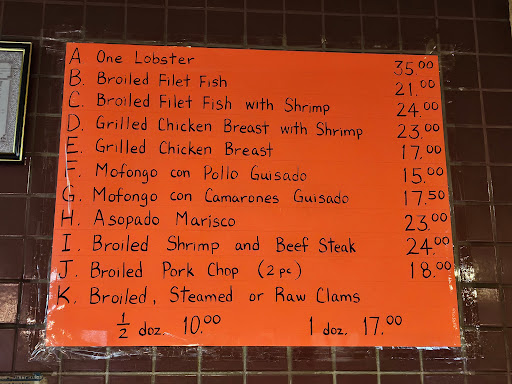 A One Lobster 35.00
B. Broiled Filet Fish 21.00
C. Broiled Filet Fish with Shrimp 24.00
D. Grilled Chicken Breast with Shrimp 23.00
E. Grilled Chicken Breast 17.00
F. Mofongo con Pollo Guisado 15.00
G. Mofongo con Camarones Guisado 17.50
H. Asopado Marisco 23.00
I. Broiled Shrimp and Beef Steak 24.00
J. Broiled Pork Chop (2 pc) 18.00
K. Broiled, Steamed or Raw Clams
1/2 doz. 10.00 1 doz. 17.00